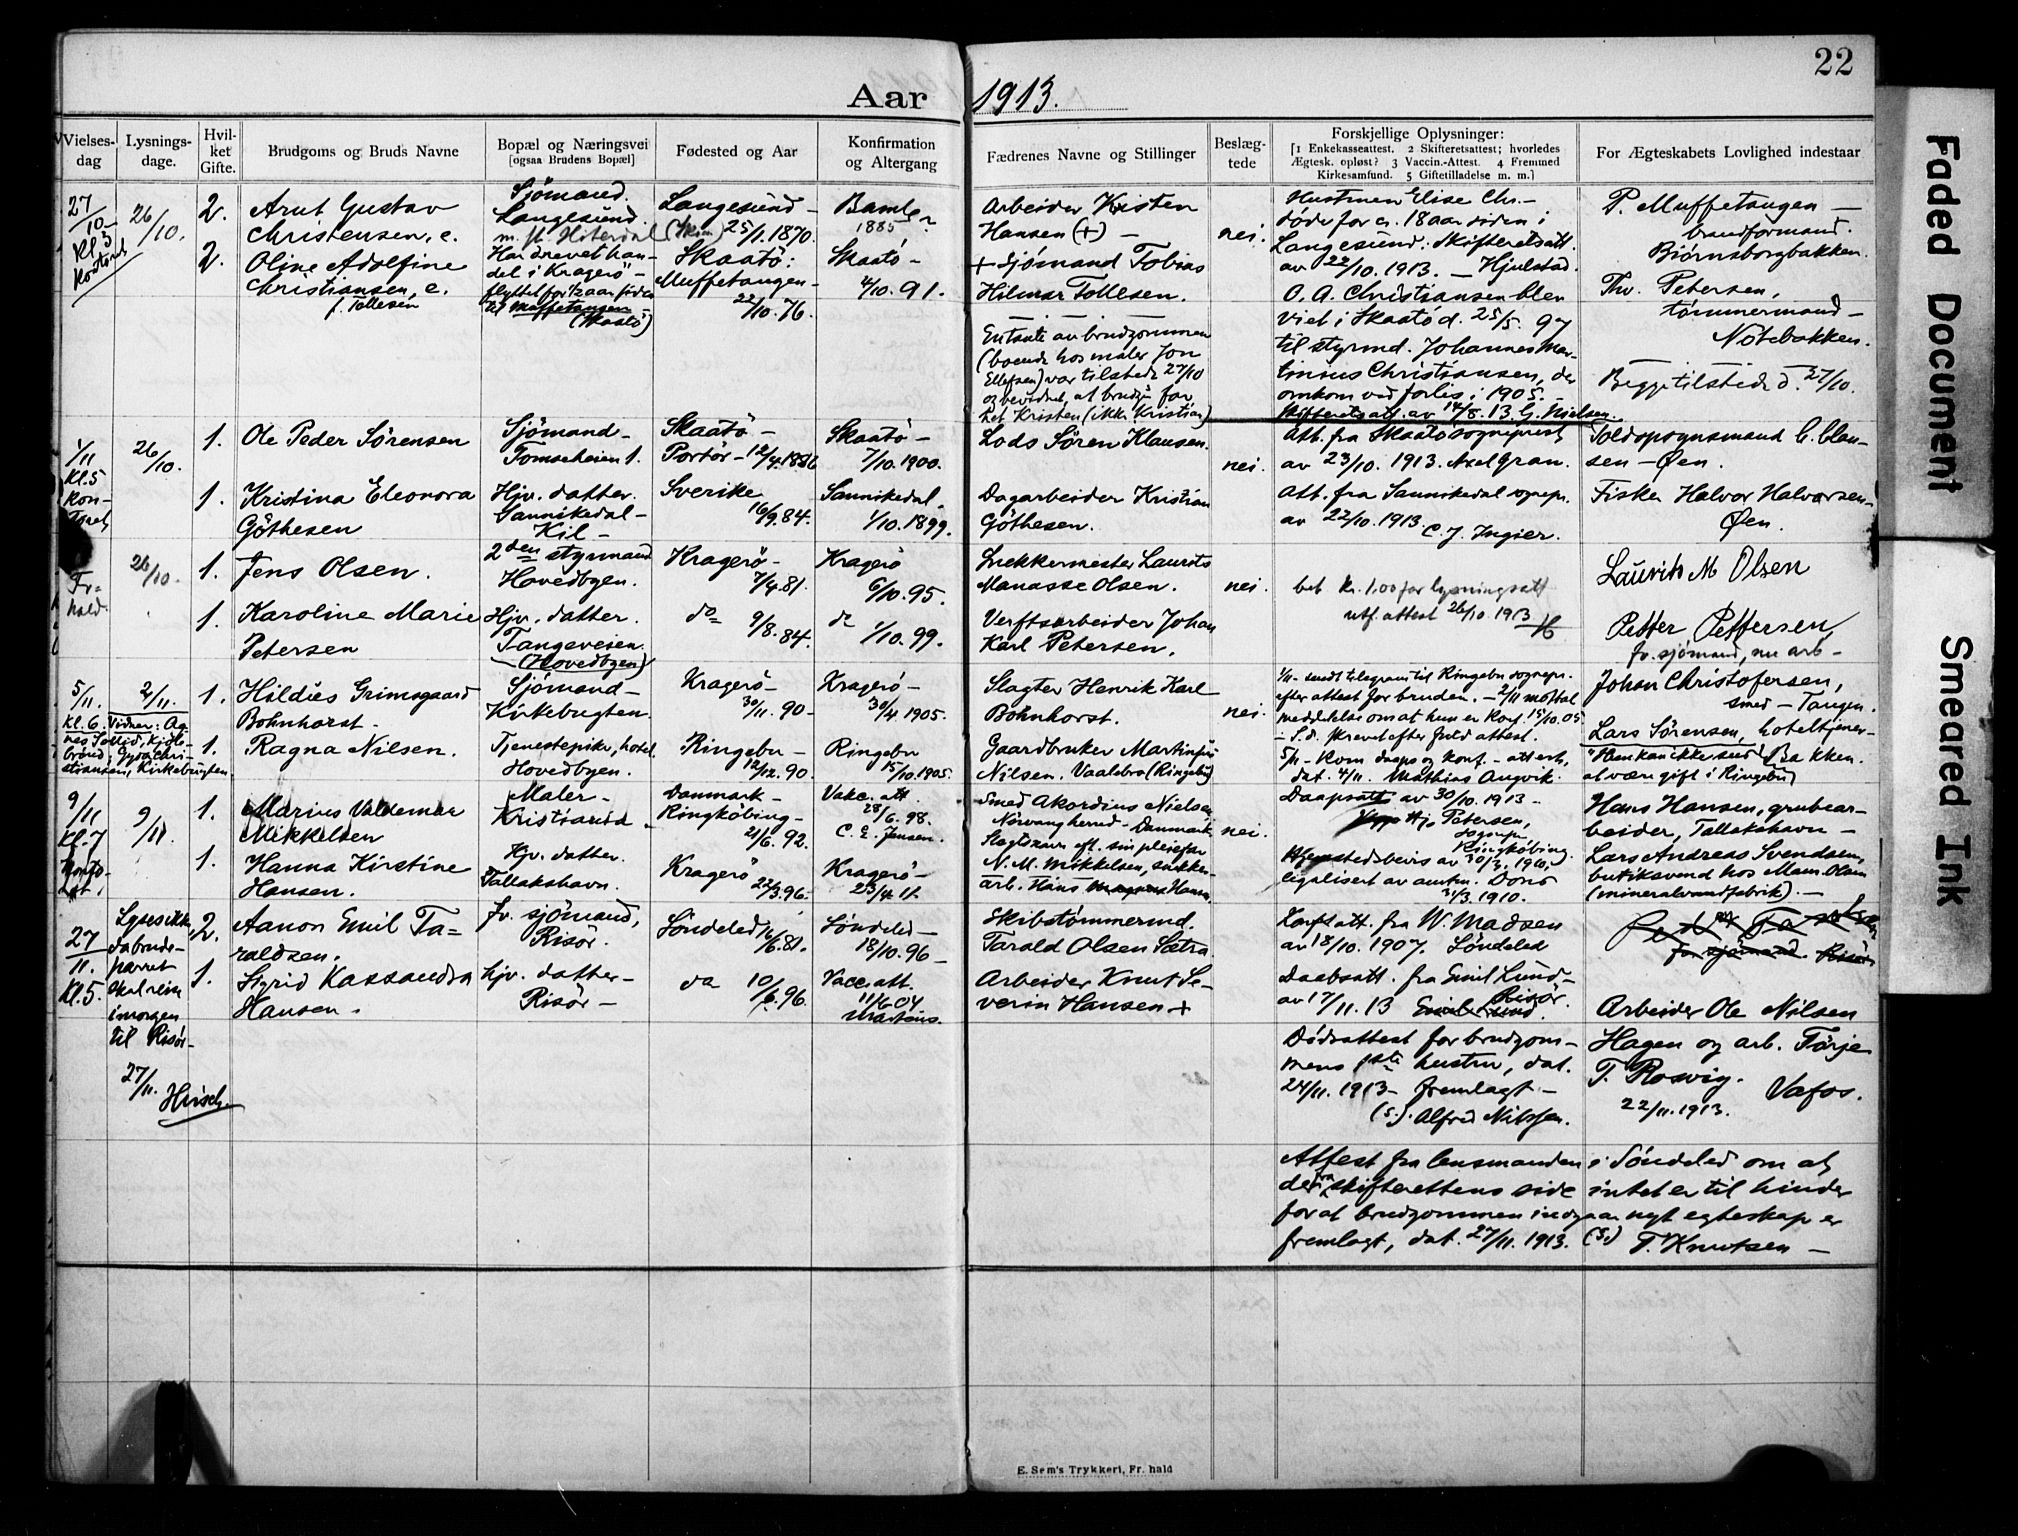 22
Aar 1913.
Vielses-
dag
Lysnings-
dage.
Hvil-
ket
Gifte.
Brudgoms og Bruds Navne
Bopæl og Næringsvei
[ogsaa Brudens Bopæl]
Fødested og Aar
Konfirmation
og Altergang
Fædrenes Navne og Stillinger
Beslæg-
tede
Forskjellige Oplysninger:
[1 Enkekasseattest. 2 Skifteretsattest; hvorledes
Ægtesk. opløst? 3 Vaccin.-Attest. 4 Fremmed
Kirkesamfund. 5 Giftetilladelse m. m.]
For Ægteskabets Lovlighed indestaar
27/10
Kl 3
26/10.
2.
Arnt Gustav
Christensen, e.
Sjömand.
Langesund.
Langesund-
25/1.1870.
Bamle
1885
Arbeider Kristen
Hansen (+) -
nei.
Hustruen Elise Chr.-
döde for c. 18 aar siden i
Langesund. Skifteretsatt.
av 22/10. 1913. - Hjulstad.
P. Muffetangen -
brandformand.
Björnsborgbakken.
2.
Oline Adolfine
Christiansen, e.
f. Tollesen
Har drevet han-
del i Kragerö-
flyttet for 1/2 aar siden
til Muffetangen
(Skaatö)
Skaatö:
Muffetangen-
22/10. 76.
Skaatö-
4/10. 91.
+ Sjömand Tobias
Hilmar Tollesen.
En tante av brudgommen
(boende hos maler Jon
Ellefsen) var tilstede 27/10
og bevidnet, at brudg. far
het Kristen (ikke Kristian)
O. A. Christiansen blev
viet i Skaatö d. 25/5. 97
til styrmd. Johannes Mar-
tinius Christiansen, der
omkom ved forlis i 1905. -
Skifteretsatt. av 14/8. 13 G. Nielsen.
Thv. Petersen,
tömmermand -
Notebakken.
Begge tilstede d. 27/10.
1/11
Kl.5
kon-
toret
26/10.
1.
Ole Peder Sörensen
Sjömand-
Tomteheien 1.
Skaatö -
Portör - 12/4.1886
Skaatö -
7/10.1900.
Lods Sören Klausen.
nei.
Att. fra Skaatö sogneprest
av 23/10. 1913. Axel Gran.
Toldopsynsmand C. Clau-
sen - Øen.
1.
Kristina Eleonora
Göthesen
Hjv. datter.
Sannikedal-
Kil -
Sverike
16/9.84.
Sannikedal-
1/10.1899.
Dagarbeider Kristian
Göthesen.
Att. fra Sannikedal sognepr.
av 22/10.1913. C. J. Ingier.
Fisker Halvor Halvorsen-
Øen.
Fr-
hald.
26/10.
1.
Jens Olsen.
2den styrmand
Hovedbyen.
Kragerö-
7/4.81.
Kragerö
6/10.95.
Snekkermester Laurits
Manasse Olsen.
nei.
bet kr. 1.00 for lysningsatt
utf. attest 26/10 1913
Lauritz M Olsen
1.
Karoline Marie
Petersen
Hjv. datter.
Tangeveien.
(Hovedbyen)
do
9/8.84.
do
1/10.99.
Verftsarbeider Johan
Karl Petersen.
Petter Pettersen,
fv. sjömand, nu arb-
5/11.
Kl. 6.
2/11.
Vidner: Ag-
nes Solliid, Kjöle-
bränd, Gyda Chri-
stiansen, Kirkebugten
1.
Hildius Grimsgaard
Bohnhorst-
Sjömand-
Kirkebugten.
Kragerö-
30/11. 90-
Kragerö-
30/4 1905.
Slagter Henrik Karl
Bohnhorst.
nei.
1/11- sendt telegram til Ringebu sognepr.
efter attest for bruden. - 2/11 mottat
meddelelse om at hun er konf. 15/10.05
- S. d. skrevet efter fuld attest.
Johan Christofersen,
smed - Tangen.
1.
Ragna Nilsen.
Tjenestepike, hotel
Hovedbyen.
Ringebu-
12/12.90.
Ringebu
15/10.1905.
Gaardbruker Martinius
Nilsen. Vaalebro (Ringebu)
5/11- kom daaps og konf-attest,
dat. 4/11. Mathias Angvik.
Lars Sörensen, hoteltjener-
Bakken.
9/11
Kl.7
9/11.
1.
Marius Valdemar
Mikkelsen
Maler-
Kristiania
Danmark-
Ringköbing-
21/6.92.
Vakc. att.
28/6.98.
C. E. Jensen.
Smed Akordius Nielsen
Nörvang herred - Danmark
nei.
Daapsatt av 30/10.1913-
Hj. Petersen,
sognepr.
Ringköbing.
Hans Hansen, grubear-
beider, Tallakshavn-
1.
Hanna Kirstine
Hansen.
Hjv. datter.
Tallakshavn.
Kragerö
22/3.96.
Kragerö-
23/4.11.
N. M. Mikkelsen, snekker
arb. Hans Hansen
Hjemstedsbevis av 30/3.1910,
legalisert av amtm. Dons
31/3.1910.
Lars Andreas Svendsen,
butiksvend hos Mam. Olsen
(mineralvandfabrik). -
27/11.
Kl.5.
Lyses ikke
da brude-
parret
skal reise
imorgen
til Risör-
27/11. Hirsch.
2.
Aanon Emil Ta-
raldsen.
fv. sjömand,
Risör.
Söndeled
16/6.81.
Söndeled-
18/10.96-
Skibstömmermd.
Tarald Olsen Sætra
Konf. att. fra W. Madsen
av 18/10. 1907. Söndeled
fv. sjömand Risör
1.
Sigrid Kassandra
Hansen.
hjv. datter-
Risör-
do 10/6.96.
Vacc. att.
11/6 04
Martens.
Arbeider Knut Se-
verin Hansen +
Daabsatt. fra Emil Lund-
av 17/11.13 Risör.
Emil Lund.
Dödsattest for brudgom-
mens 1ste hustru, dat.
24/11. 1913- fremlagt -
(s.). Alfred Nilssen.
Arbeider Ole Nilsen
Hagen og arb. Tarje
T. Rosvig. Vafos.
22/11.1913.
Attest fra lensmanden i Söndeled om at
der fra skifterettens side intet er til hinder
for at brudgommen indgaar nyt egteskap er
fremlagt, dat. 27/11.1913. (S.) T. Knutsen -
E. Sem's Trykkeri, Fr. hald
Faded Document
Smeared Ink